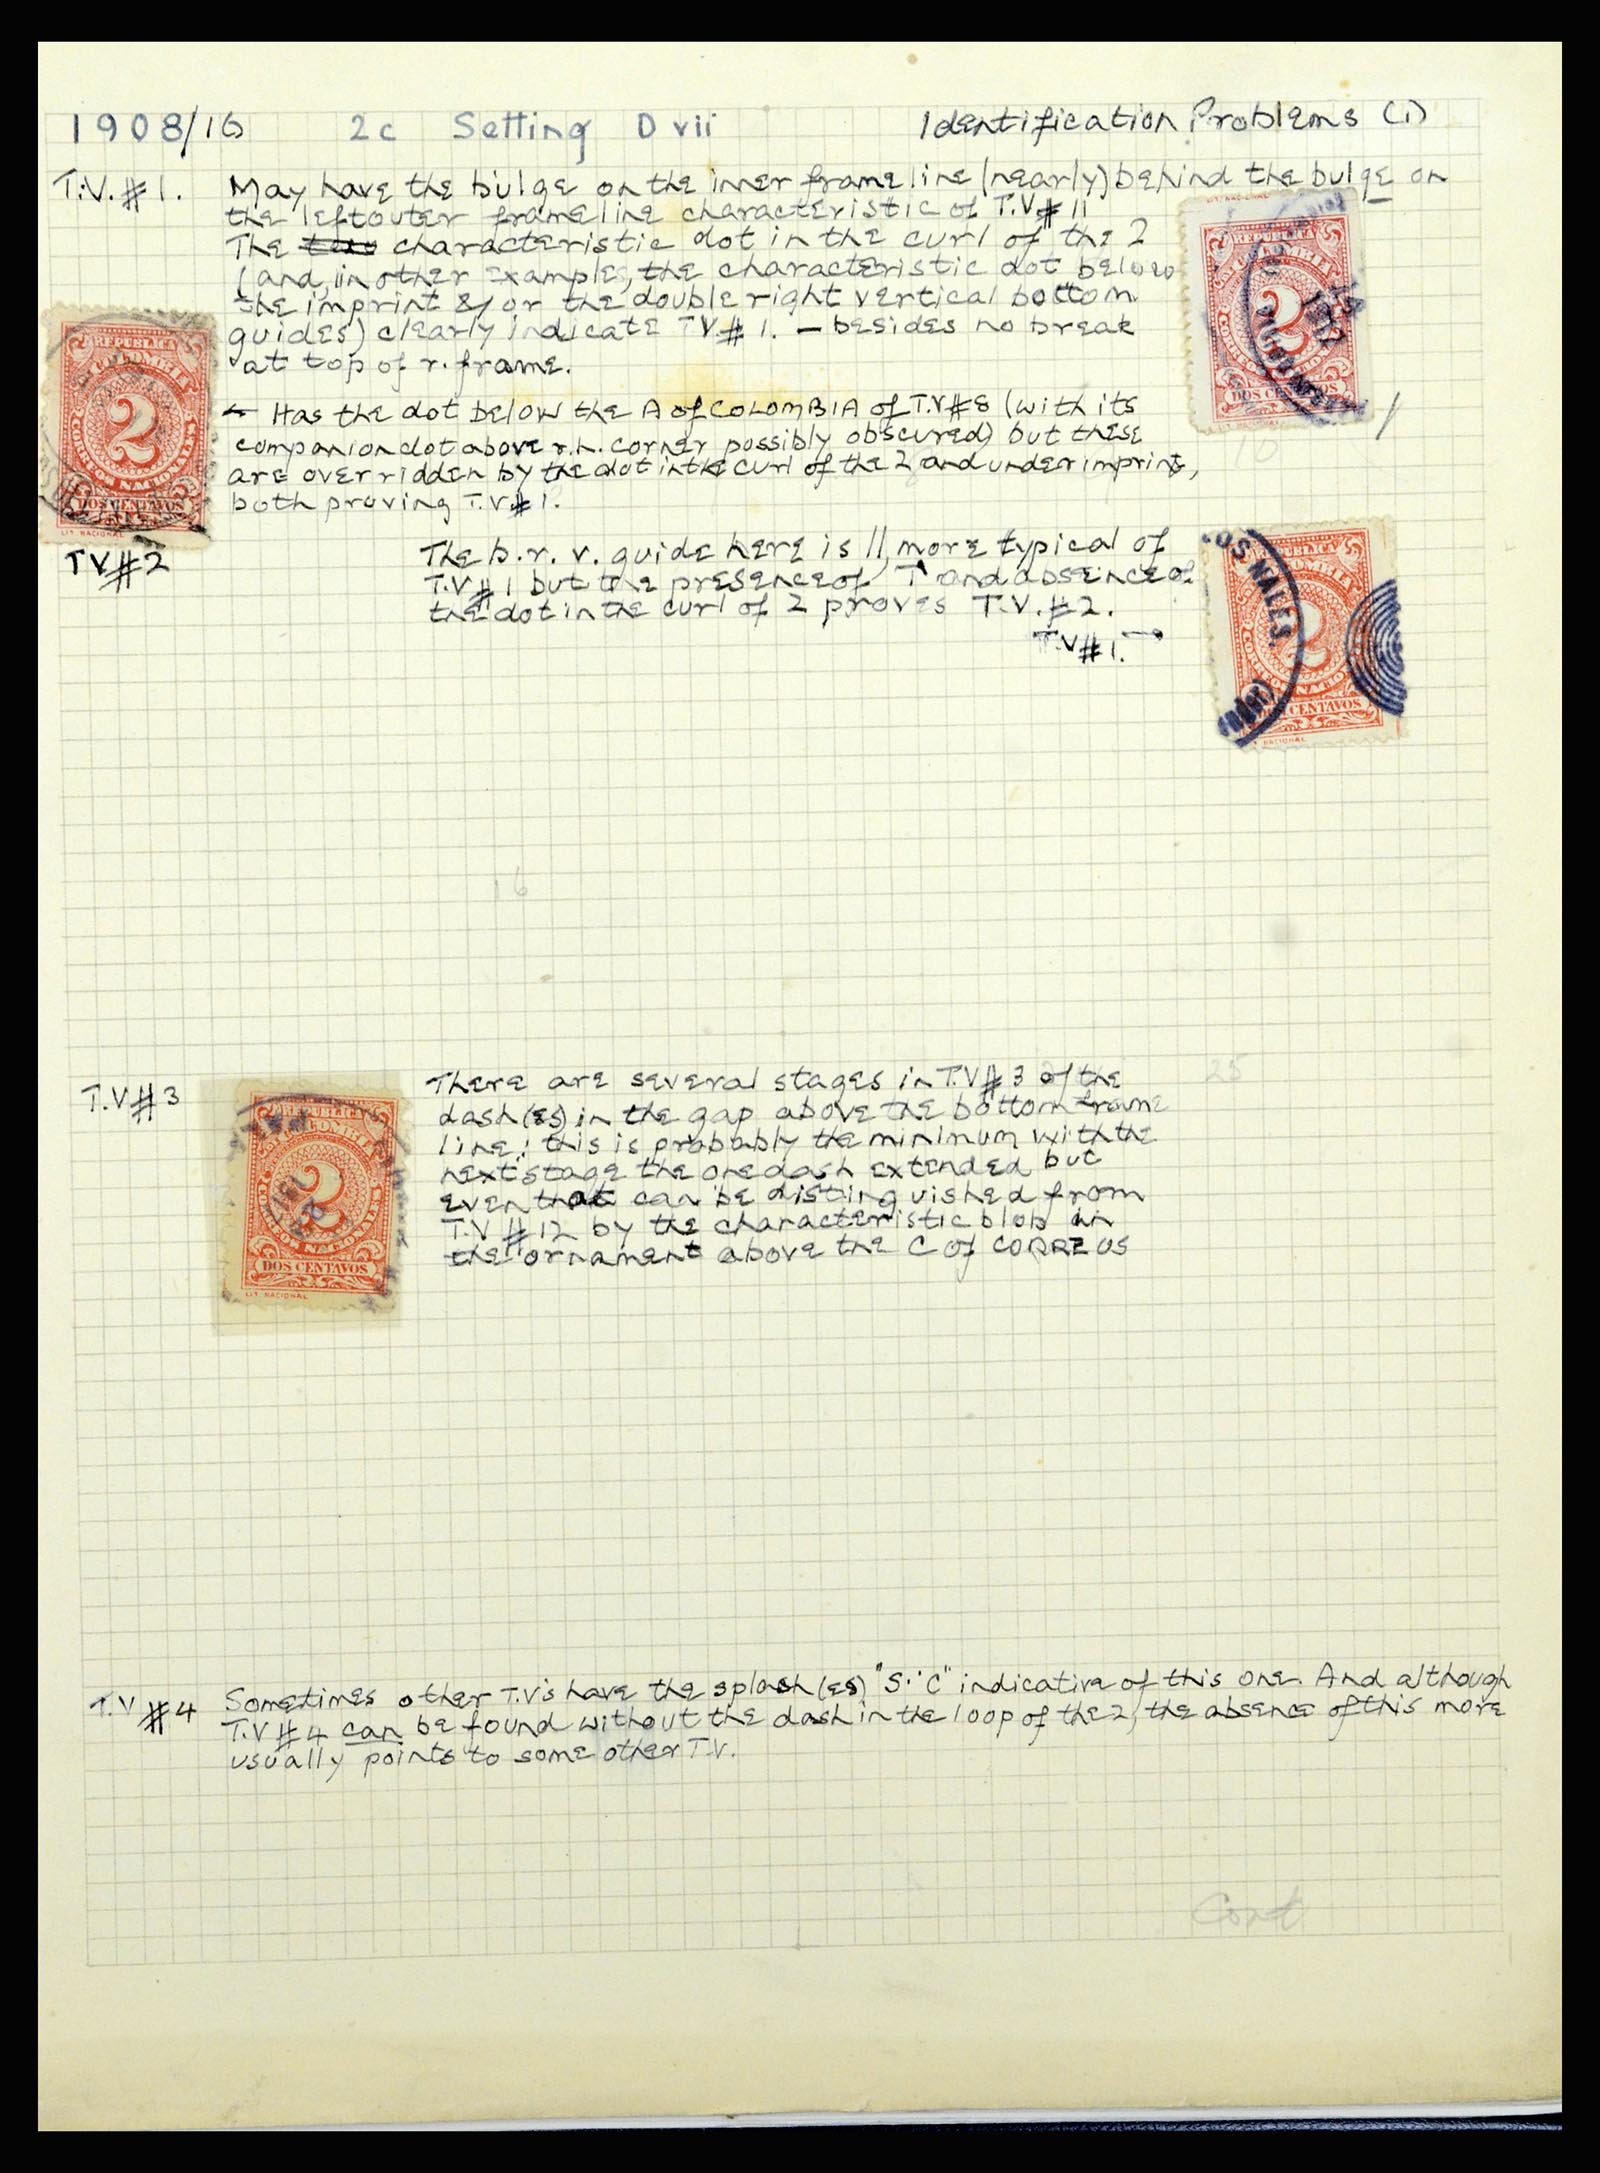 1908/16 2c Setting D vii Identification Problems (i)
T.V. # 1. May have the bulge on the inner frame line (nearly) behind the bulge on
the left outer frame line characteristic of T.V # 11
The characteristic dot in the curl of the 2
(and, in other examples, the characteristic dot below
the imprint &/or the double right vertical bottom
guides) clearly indicate T.V. # 1. – besides no break
at top of r. frame.
← Has the dot below the A of COLOMBIA of T.V # 8 (with its
companion dot above r.h. corner possibly obscured) but these
are overridden by the dot in the curl of the 2 and under imprint,
both proving T.V # 1.
10
REPUBLICA
DE COLOMBIA
2
CORREOS NACIONALES
DOS CENTAVOS
LIT. NACIONAL
LIT. NACIONAL
REPUBLICA
COLOMBIA
2
DOS CENTAVOS
TV # 2
The b.r.v. guide here is ||, more typical of
T.V # 1 but the presence of T and absence of
the dot in the curl of 2 proves T.V. # 2.
T.V # 1. →
REPUBLICA
COLOMBIA
2
CORREOS NACIO
CENTAVOS
NACIONAL
OS NALES.
16
25
T.V # 3
There are several stages in T.V # 3 of the
dash(es) in the gap above the bottom frame
line; this is probably the minimum with the
next stage the one dash extended but
even that can be distinguished from
T.V # 12 by the characteristic blob in
the ornament above the C of CORREOS
REPUBLICA
DE COLOMBIA
2
CORREOS NACIONALES
DOS CENTAVOS
LIT. NACIONAL
T.V # 4 Sometimes other T.V's have the splash(es) "S.'C" indicative of this one. And although
T.V # 4 can be found without the dash in the loop of the 2, the absence of this more
usually points to some other T.V.
Cont